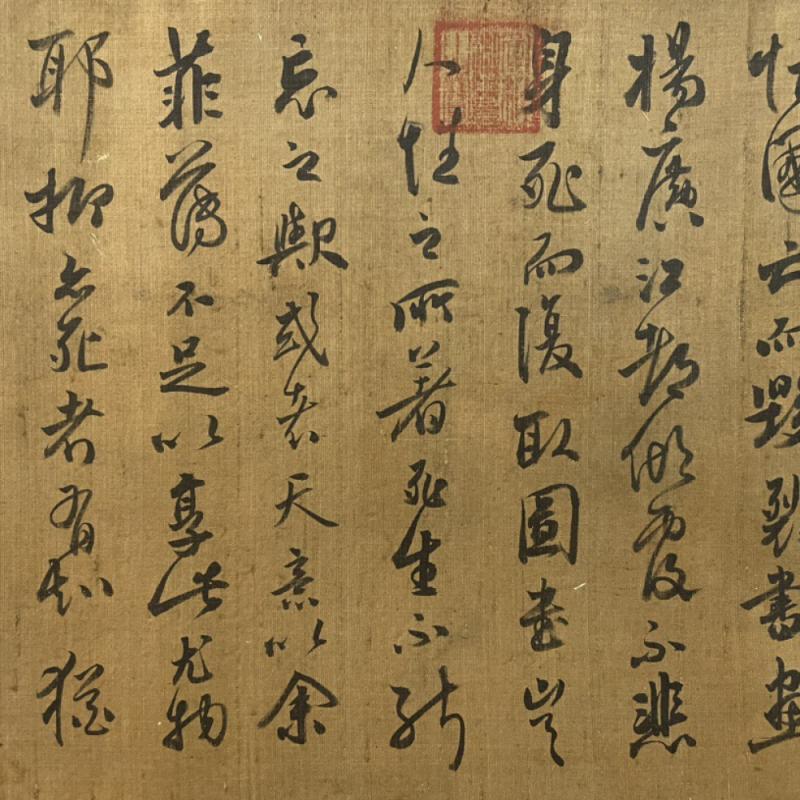 惜國亡而毀裂書畫
楊廣江都傾覆不悲
身死而復取圖書豈
人性之所著死生不能
忘之歟或者天意以余
菲薄不足以享此尤物
耶抑亦死者有知猶